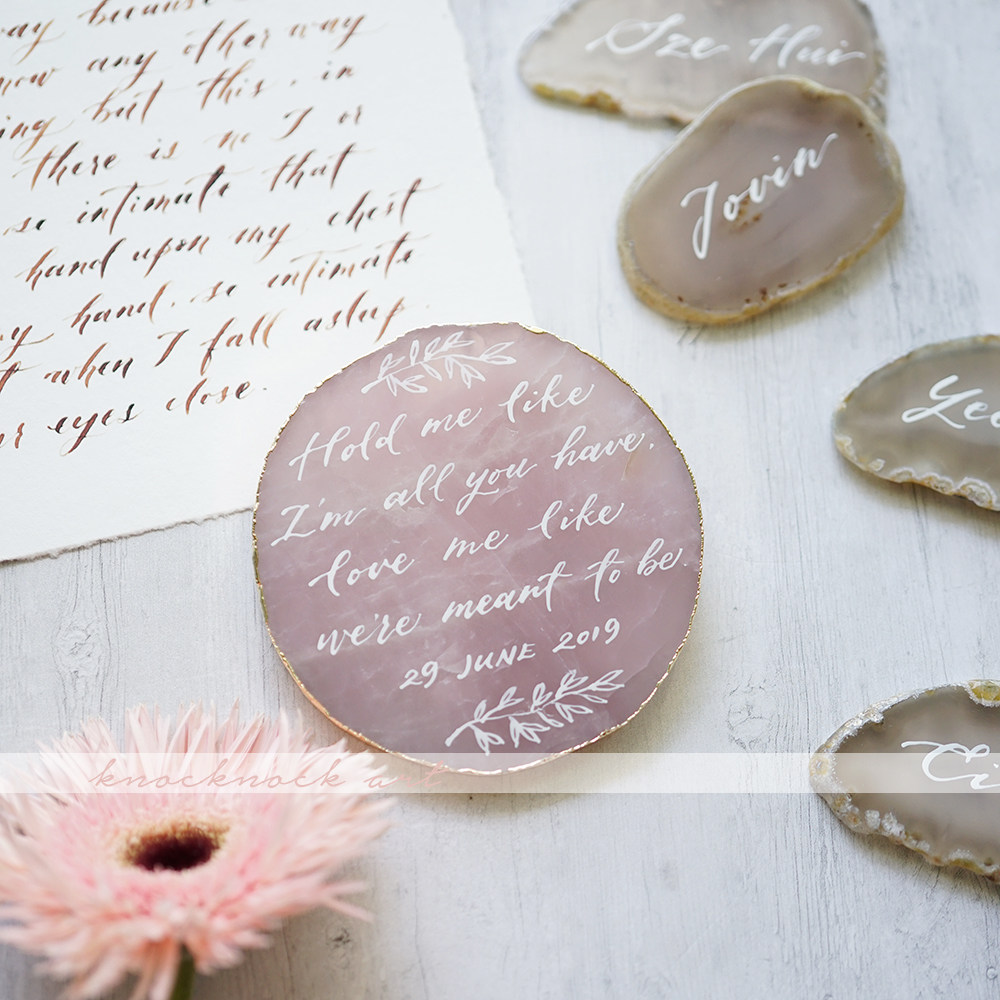 way because
any other way
but this, in
there is no I or
so intimate that
hand upon my chest
my hand, so intimate
when I fall asleep
eyes close.
Sze Hui
Jovin
Hold me like
I'm all you have.
love me like
we're meant to be.
29 JUNE 2019
knocknock art